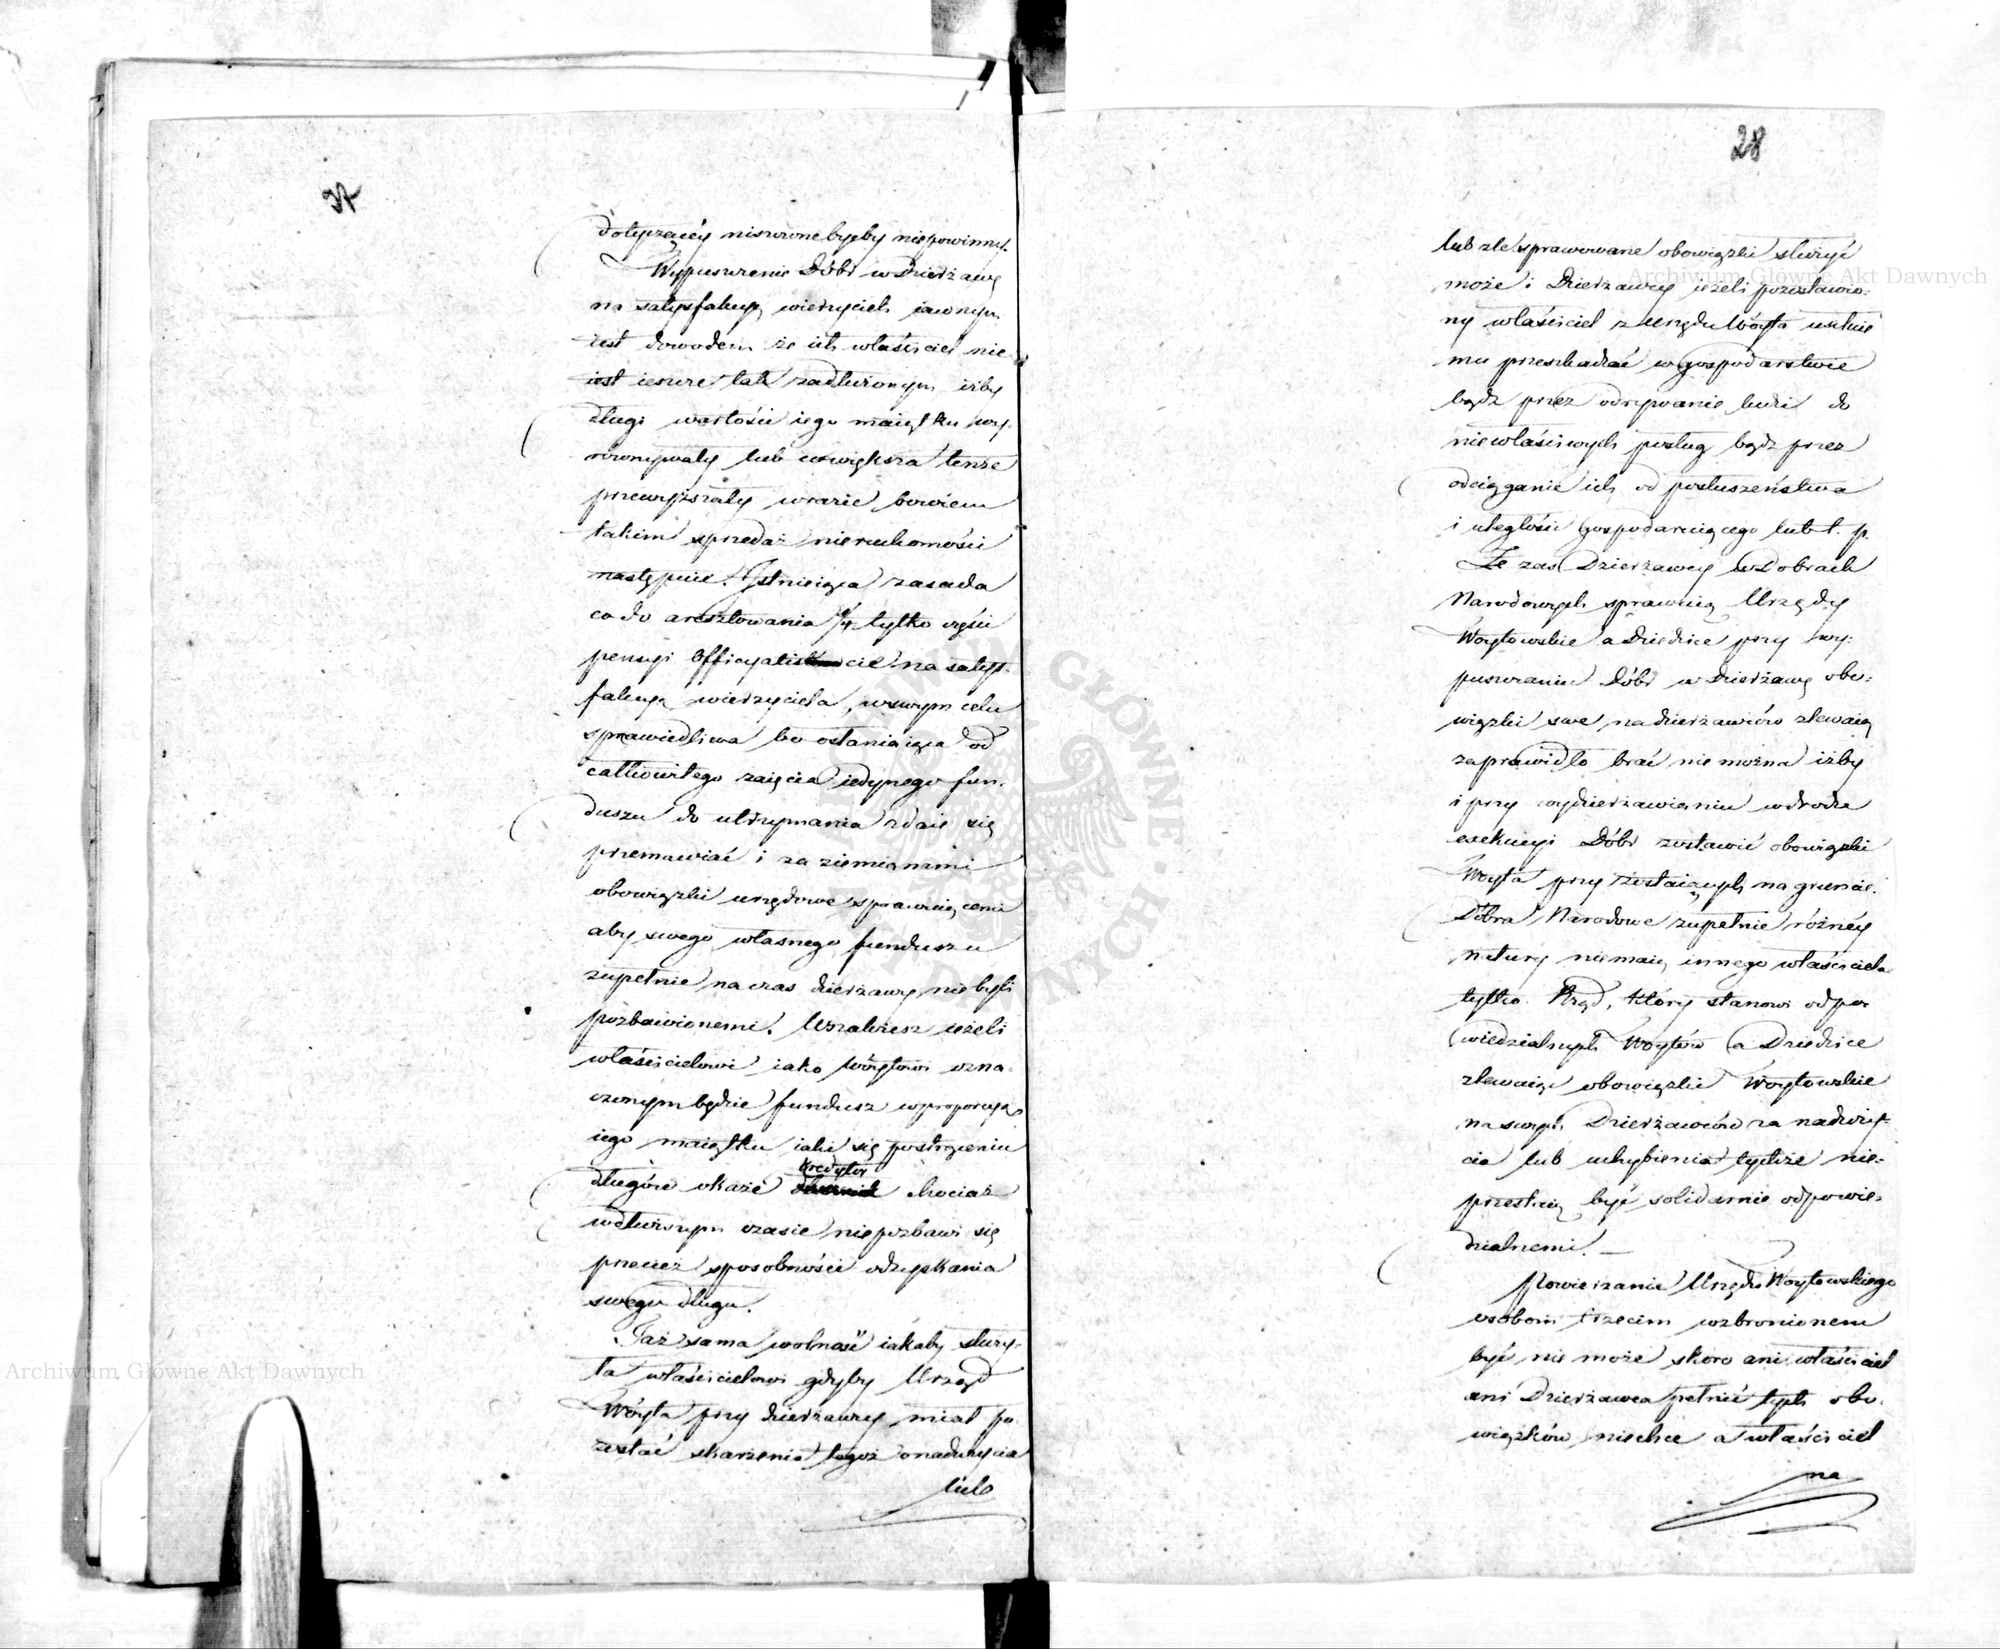 dotyczącéy niszczone byćby niepowinny.
Wypuszczenie Dóbr w Dzierżawę
na satysfakcyą wierzycieli iawnym
iest dowodem że ich właściciel nie
iest ieszcze tak zadłużonym iżby
długi wartości iego maiątku wy-
równywały lub
przewyższały w razie bowiem
takim sprzedaż nieruchomości
następuie. Istnieiąca zasada
co do aresztowania 1/4 tylko części
pensyi Officyalis na satys-
fakcyą wierzyciela, w swym celu
sprawiedliwa bo ochraniaiąca od
całkowitego zaięcia iedynego fun-
duszu do utrzymania zdaie się
przemawiać i za ziemianami
obowiązki urzędowe sprawuiącemi
aby swego własnego funduszu
zupełnie na czas dzierżawy nie byli
pozbawionemi. Wszakżesz ieżeli
właścicielowi iako Wóytowi ozna-
czonym będzie fundusz w proporcyą
iego maiątku iaki się po strąceniu
długów okaże kredytor chociaż
w dłuższym czasie nie pozbawi się
przecież sposobności odzyskania
swego długu.
Taż sama wolność iakaby służy-
ła właścicielowi gdyby Urząd
Wóyta przy dzierżawcy miał po-
zostać skarżenia tegoż o nadużycia
lub
28
lub źle sprawowane obowiązki służyć
może i Dzierżawcy ieżeli pozostawio-
ny właściciel z Urzędu Wóyta
mu przeszkadzać w gospodarstwie
bądz przez odrywanie ludzi do
niewłaściwych posług bądz przez
odciąganie ich od posłuszeństwa
i uległości Gospodaruiącego lub t. p.
Ze zaś Dzierżawcy w Dobrach
Narodowych sprawuią Urzędy
Woytowskie a Dziedzice przy wy-
puszczaniu Dóbr w Dzierżawę obo-
wiązki swe na dzierżawców zlewaią
za prawidło brać nie można iżby
i przy wydzierżawianiu w drodze
exekucyi Dóbr zostawić obowiązki
Woyta przy zostaiących na gruncie.
Dobra Narodowe zupełnie różnéy
natury niemaią innego właściciela
tylko Rząd, który stanowi odpo-
wiedzialnych Woytów a Dziedzice
zlewaiąc obowiązki Woytowskie
na swych Dzierżawców za naduży-
cia lub uchybienia tychże nie-
przestaią być solidarnie odpowie-
dzialnemi. —
Powierzanie Urzędu Woytowskiego
osobom trzecim wzbronionem
być nie może skoro ani właściciel
ani Dzierżawca pełnić tych obo-
wiązków niechce a właściciel
na
Archiwum Główne Akt Dawnych
Archiwum Główne Akt Dawnych